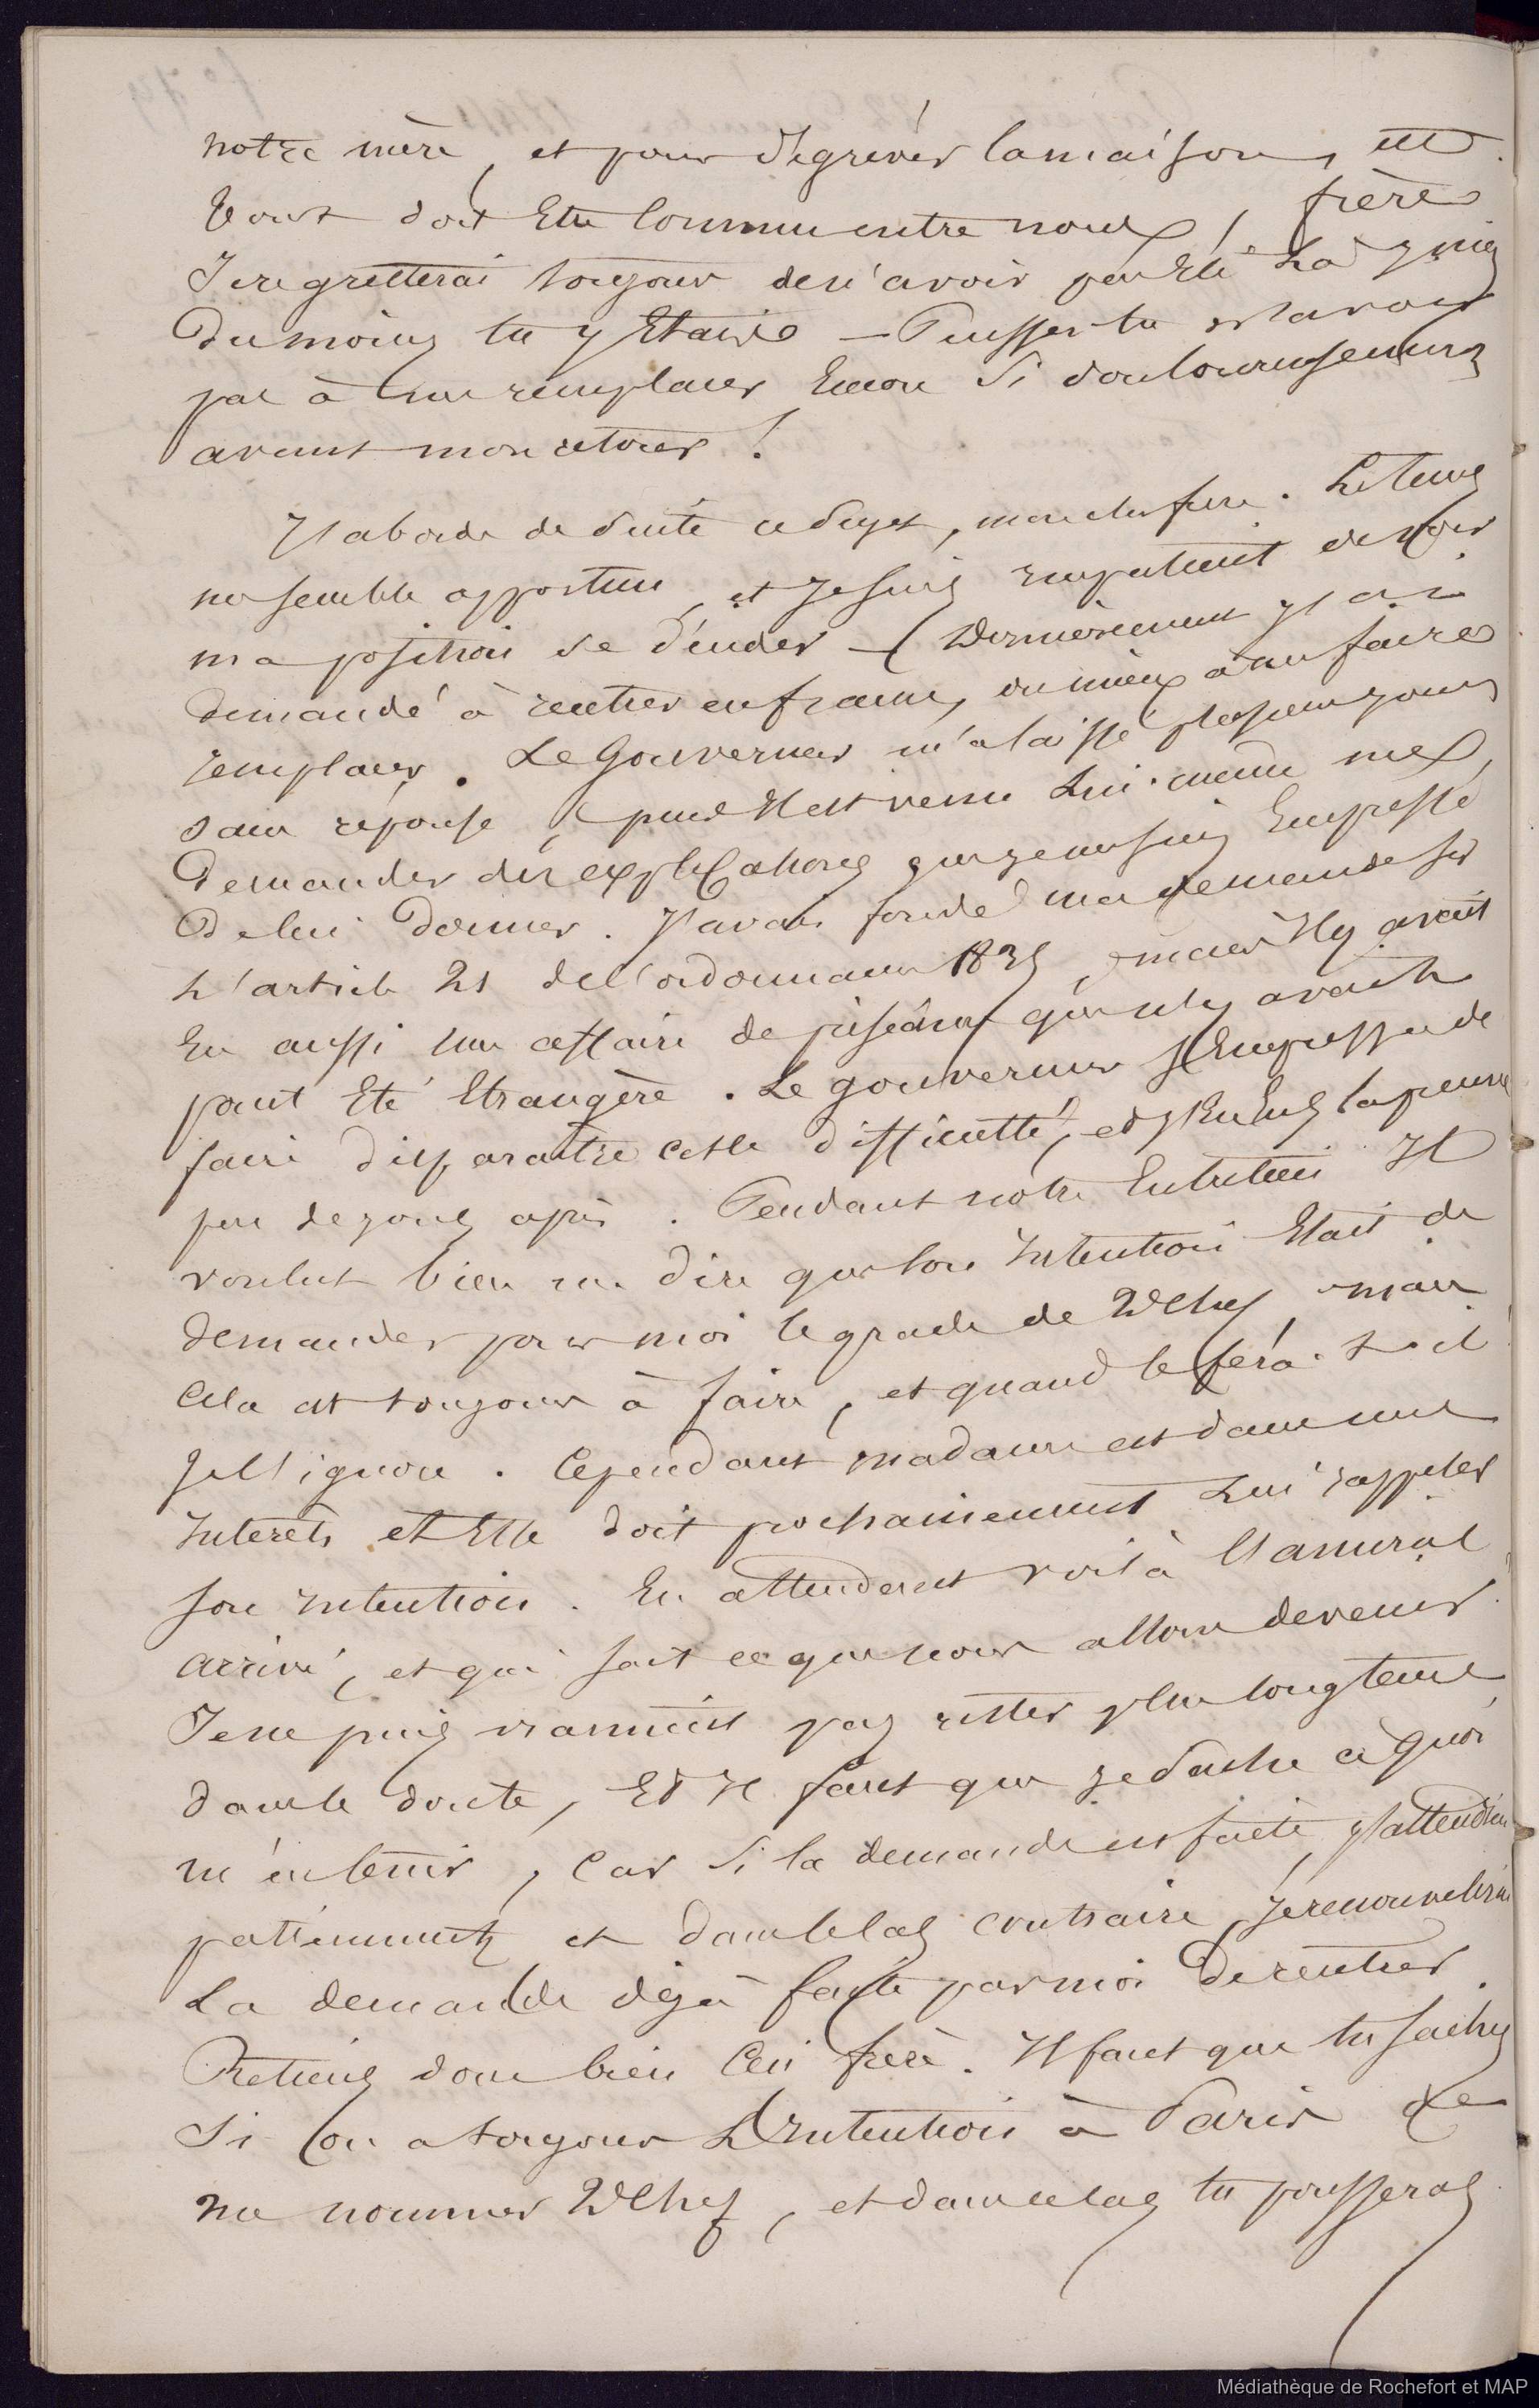 notre mère, et pour dégrèver la maison, etc.
tout doit Etre Commun entre nous, frère
Je regretterai toujours de n'avoir pas Eté Là, mais
Du moins tu y Etais — Puisses-tu n'avoir
pas à me remplacer Encore Si douloureusement
avant mon retour !
J'aborde de Suite ce Sujet, mon cher frère. Le tems
me semble opportun, et Je suis Impatient de voir
ma position se décider — Dernièrement j'ai
demandé à rentrer en france, ou mieux à me faire
remplacer. Le Gouverneur m'a laissé plusieurs jours
sans réponse, puis Il est venu Lui-même me
Demander des explications que je me suis Empressé
De lui Donner. J'avais fondé ma demande sur
L'article 21 de l'ordonnance 1835, mais Il y avait
Eu aussi une affaire de préséance qui n'y avait
point Eté Etrangère. Le gouverneur s'Empressa de
faire disparaître cette difficulté, et j'En Eus la preuve
peu de jours après. Pendant notre Entretien Il
voulut bien me dire que son Intention Etait de
demander pour moi le grade de 2d Chef, mais
Cela est toujours à faire, et quand le fera-t-il
Je l'ignore. Cependant madame est dans mes
Intérêts et Elle doit prochainement Lui rappeler
son Intention. En attendant voilà l'amiral
arrivé, et qui sait ce que nous allons devenir.
Je ne puis vraiment pas rester plus longtems
dans le doute, Et Il faut que je sache à quoi
m'en tenir, Car Si la demande est faite, j'attendrai
patiemment et dans le cas contraire, Je renouvelerai
La demande déjà faite par moi De rentrer.
Retiens donc bien Ceci frère. Il faut que tu saches
Si on a toujours L'Intention à Paris de
me nommer 2d Chef, et dans ce cas tu pousseras
Médiathèque de Rochefort et MAP